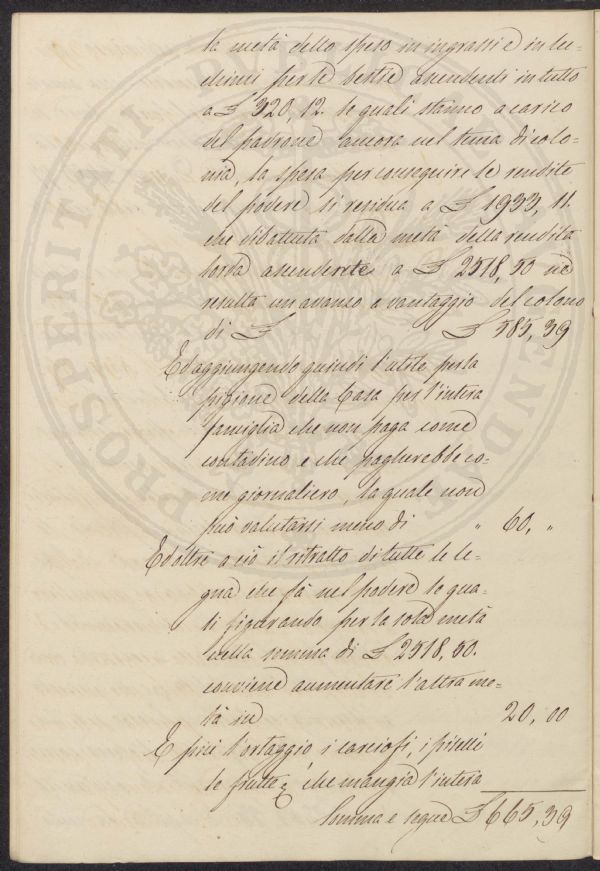 la metà dello speso in ingrassi e in lu-
dimi per le bestie ascendenti in tutto
a £ 320, 12. le quali stanno a carico
del padrone ancora nel tema di colo-
nia, la spesa per conseguire le rendite
del podere si residua a £ 1933, 11.
che dibattuta dalla metà della rendita
lorda ascendente a £ 2518, 50 ne
resulta un avanzo a vantaggio del colono
di £ £ 585, 39
Ed aggiungendo quindi l'utile per la
pigione della Casa per l'intera
famiglia che non paga come
contadino e che pagherebbe co-
me giornaliero, la quale non
può valutarsi meno di " 60, "
Ed oltre a ciò il ritratto di tutte le le-
gna che fà nel podere le qua-
li figurando per la sola metà
nella somma di £ 2518, 50.
conviene aumentare l'altra me-
tà in 20, 00
E più l'ortaggio i carciofi, i piselli
le frutte &c che mangia l'intera
Somma e segue £ 665, 39
PROSPERITATI PUBLICAE